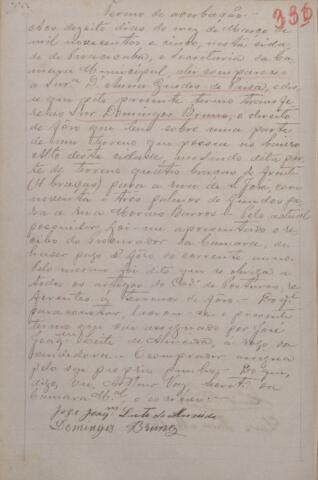 336
Termo de averbação
Aos dezoito dias do mez de Março de
mil novecentos e cinco, nesta cida-
de de Piracicaba, e Secretaria da Ca-
mara Municipal, ahi compareceo
a Snra. D. Anna Guedes de Souza, e dis-
se que pelo presente termo transfe-
re ao Snr. Domingos Bruno, o direito
de fôro que tem sobre uma parte
de um terreno que possue no bairro
Alto desta cidade, medindo dita par-
te de terreno quatro braças de frente
(4 braças) para a rua de S. José, com
noventa e três palmos de fundos pa-
ra a rua Moraes Barros. Pelo actual
possuidor, foi-me apresentado o re-
cibo do procurador da Camara, de
haver pago o fôro do corrente anno.
Pelo mesmo foi dito que se obriga a
todos os artigos do Cod. de Posturas, re-
ferentes a terrenos de fôro. Do que
para constar, lavrou-se o presente
termo que vai assignado por José
Joaqm. Leite de Almeida, a rogo da
vendedora. O comprador assigna
pelo seu proprio punho. Do que,
digo, Eu, Arthur Vaz, Secret. da
Camara Mal., o escrevi.
José Joaqm. Leite de Almeida
Domingos Bruno